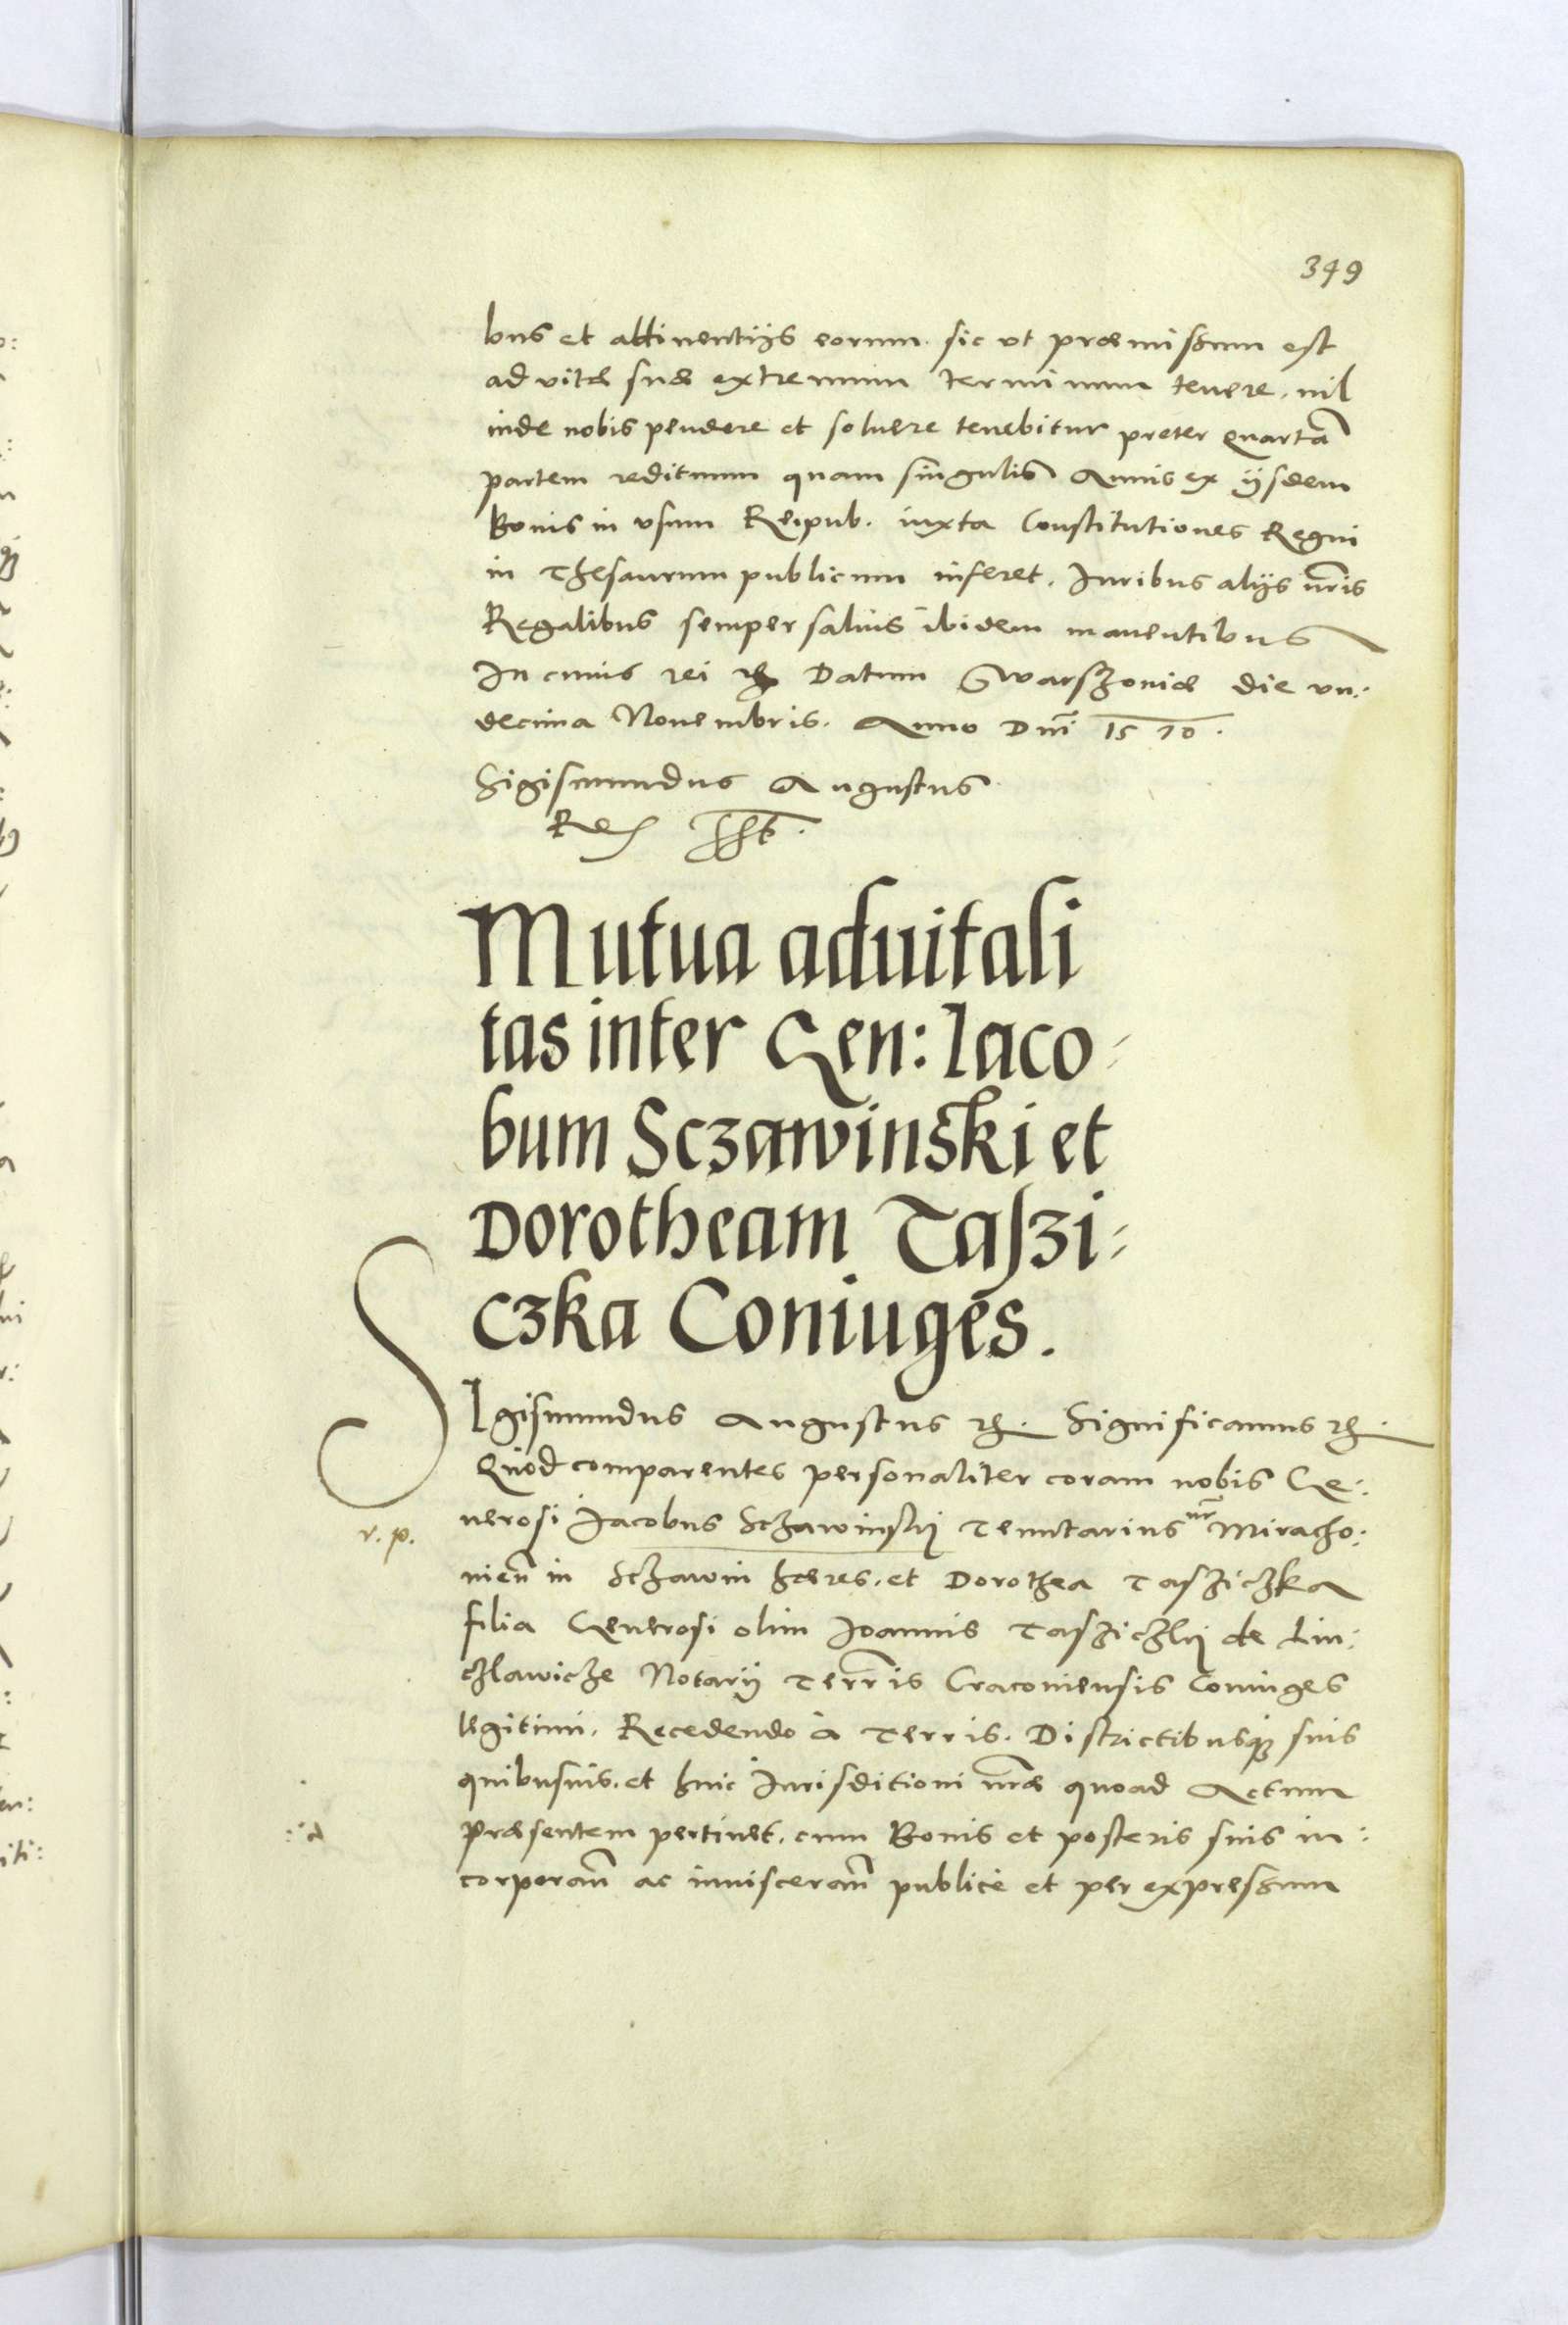 349
bus et attinentijs eorum. sic vt præmissum est
ad vitæ suæ extremum terminum tenere. nil
inde nobis pendere et soluere tenebitur preter Quartã
partem redituum quam singulis Annis ex ijsdem
Bonis in vsum Reipub. iuxta Constitutiones Regni
in Thesaurum publicum inferet. Iuribus alijs nr̃is
Regalibus semper saluis ibidem manentibus
In cuius rei etc Datum Warszouiæ die vn:
decima Nouembris. Anno Dnĩ 1570.
Sigismundus Augustus
Rex sst.
Mutua aduitali
tas inter Gen: Iaco=
bum Sczawinski et
Dorotheam Taszi=
czka Coniuges.
SIgismundus Augustus etc. Significamus etc.
Quod comparentes personaliter coram nobis Ge:
nerosi Jacobus Sczawinskÿ Tenutarius nr̃ Miracho:
r. p.
nieñ in Sczawin hæres. et Dorothea Tasziczka
filia Generosi olim Joannis Tasziczkÿ de Lu:
czlawicze Notarij Terrr̃is Cracouiensis Coniuges
legitimi. Recedendo à Terris. Districtibusq; suis
quibusuis. et huic Jurisditioni nr̃æ quoad Actum
Præsentem pertinet. cum Bonis et posteris suis in:
corporañ ac inuiscerañ publicè et per expressum